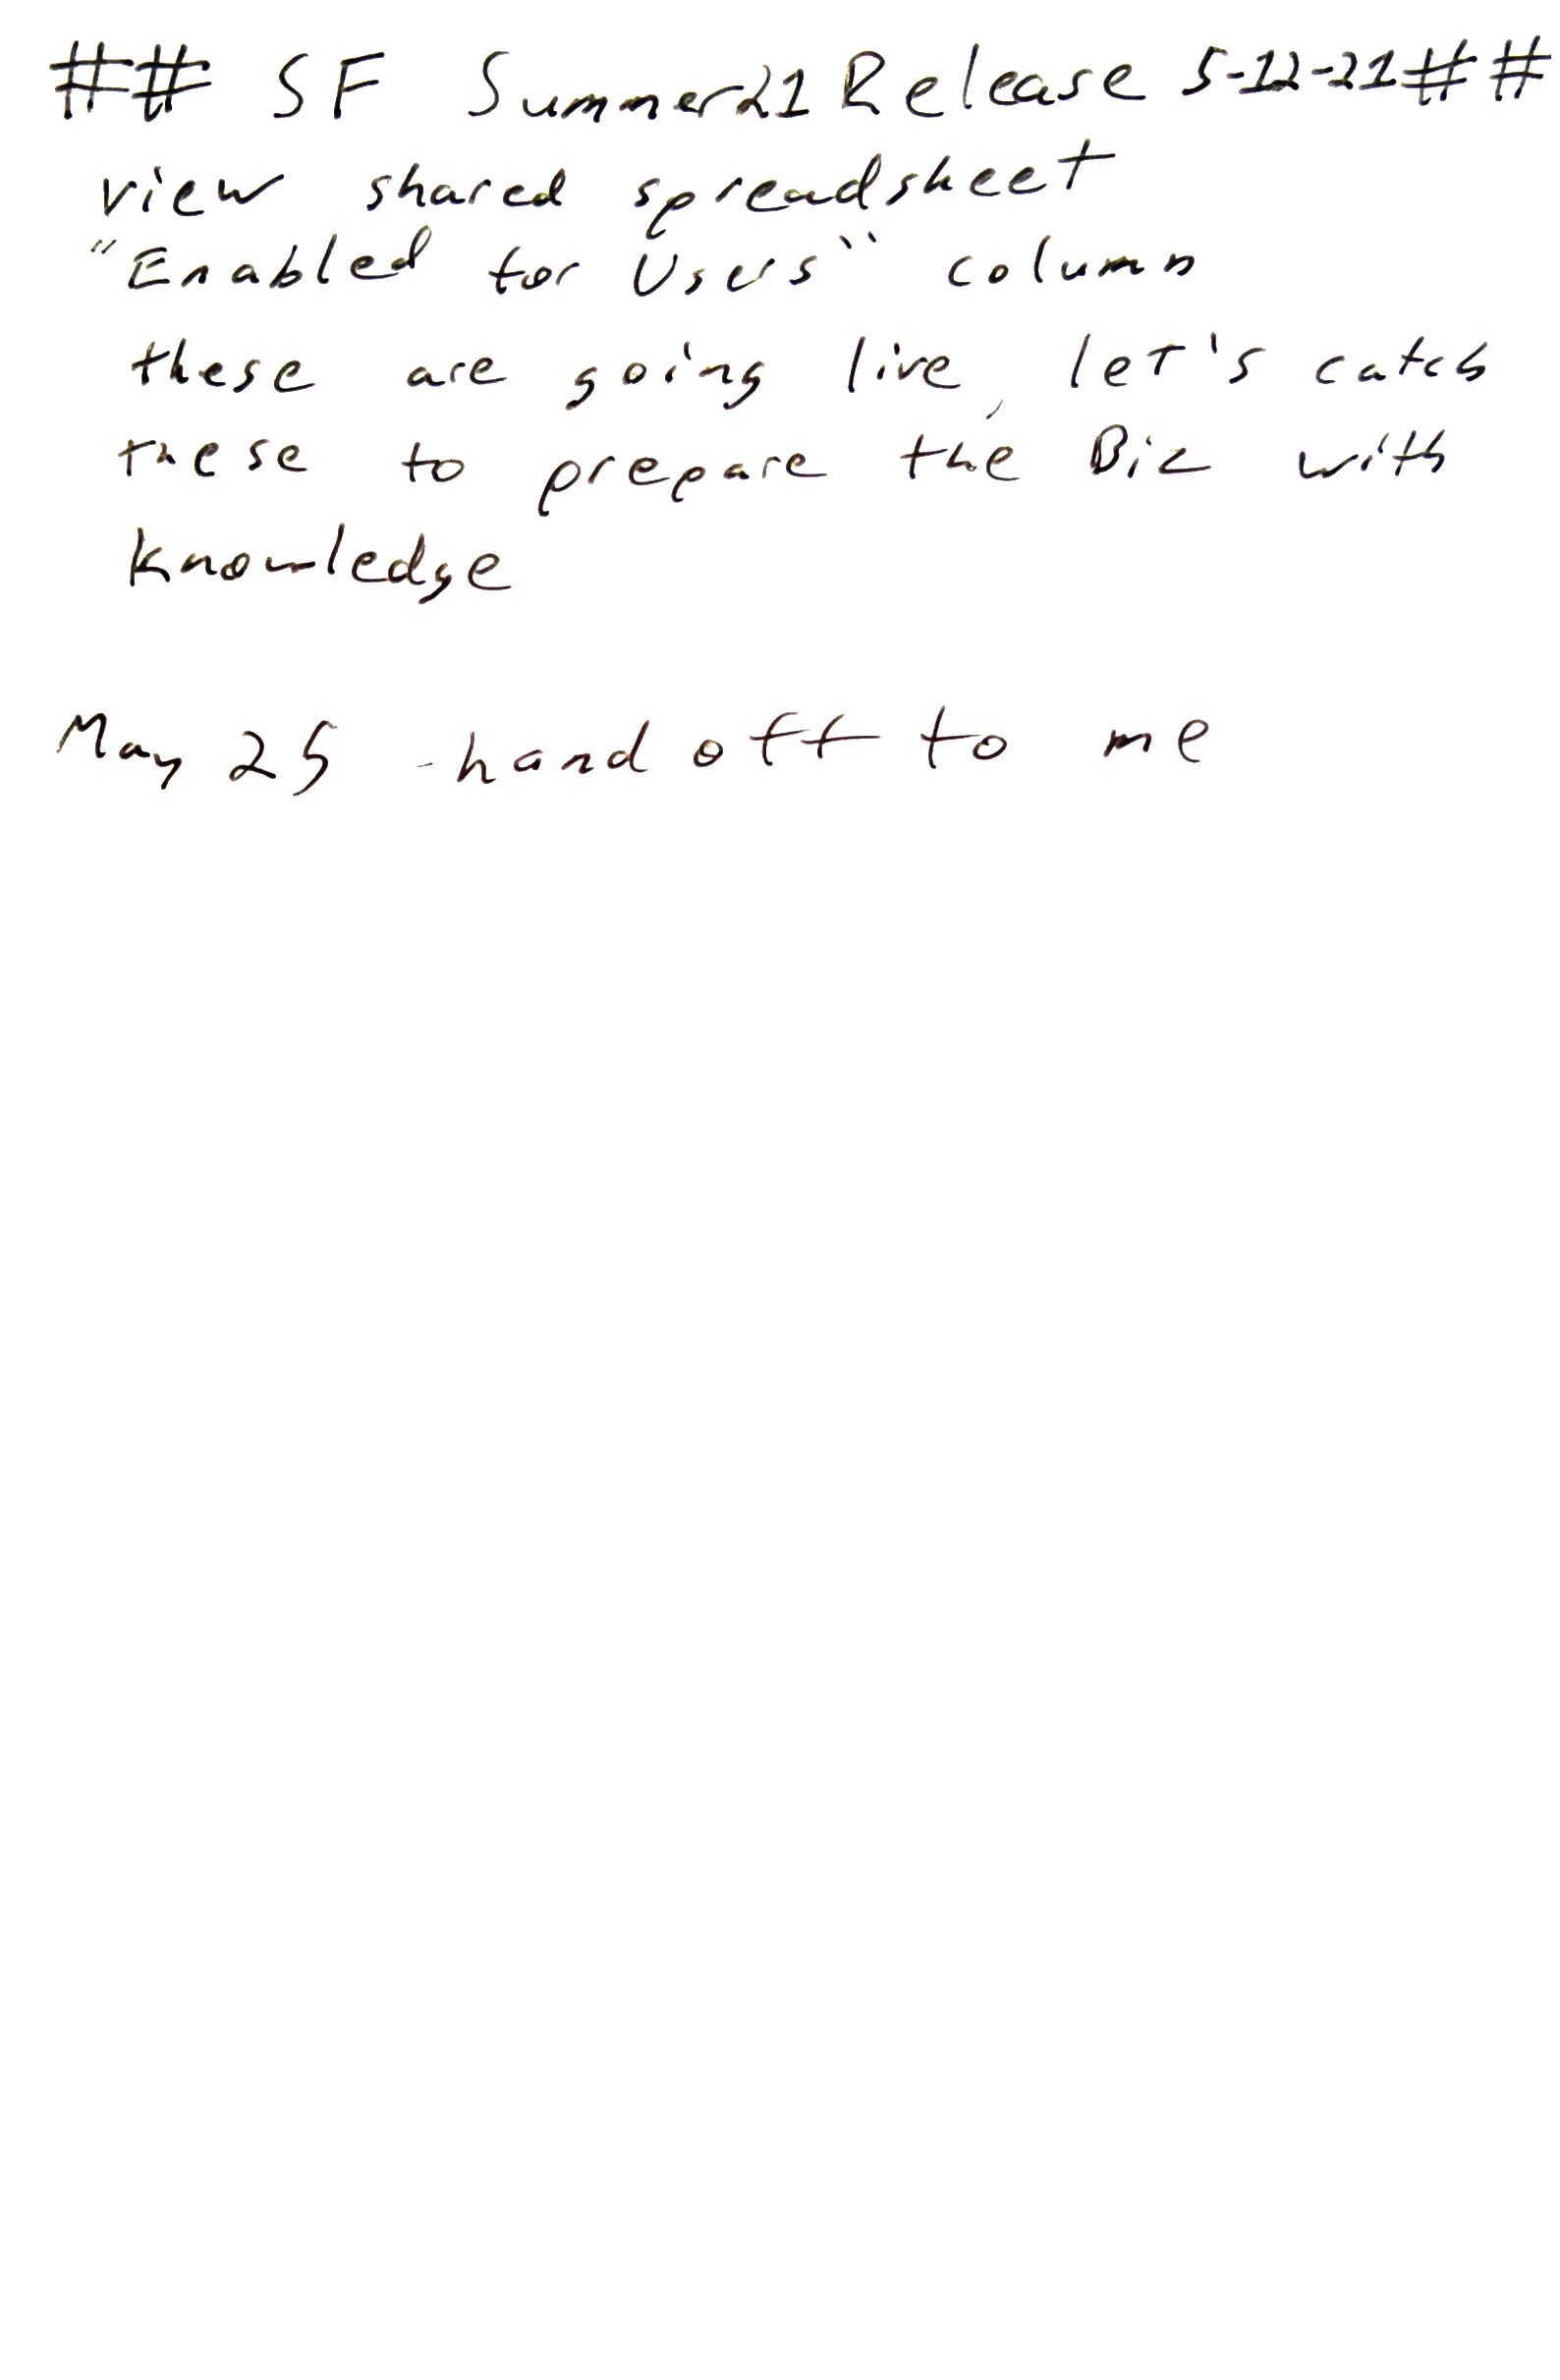 ## SF Summer21 Release 5-12-21##
view shared spreadsheet
"Enabled for Users" column
these are going live, let's catch
these to prepare the Biz with
knowledge
May 25 - hand off to me